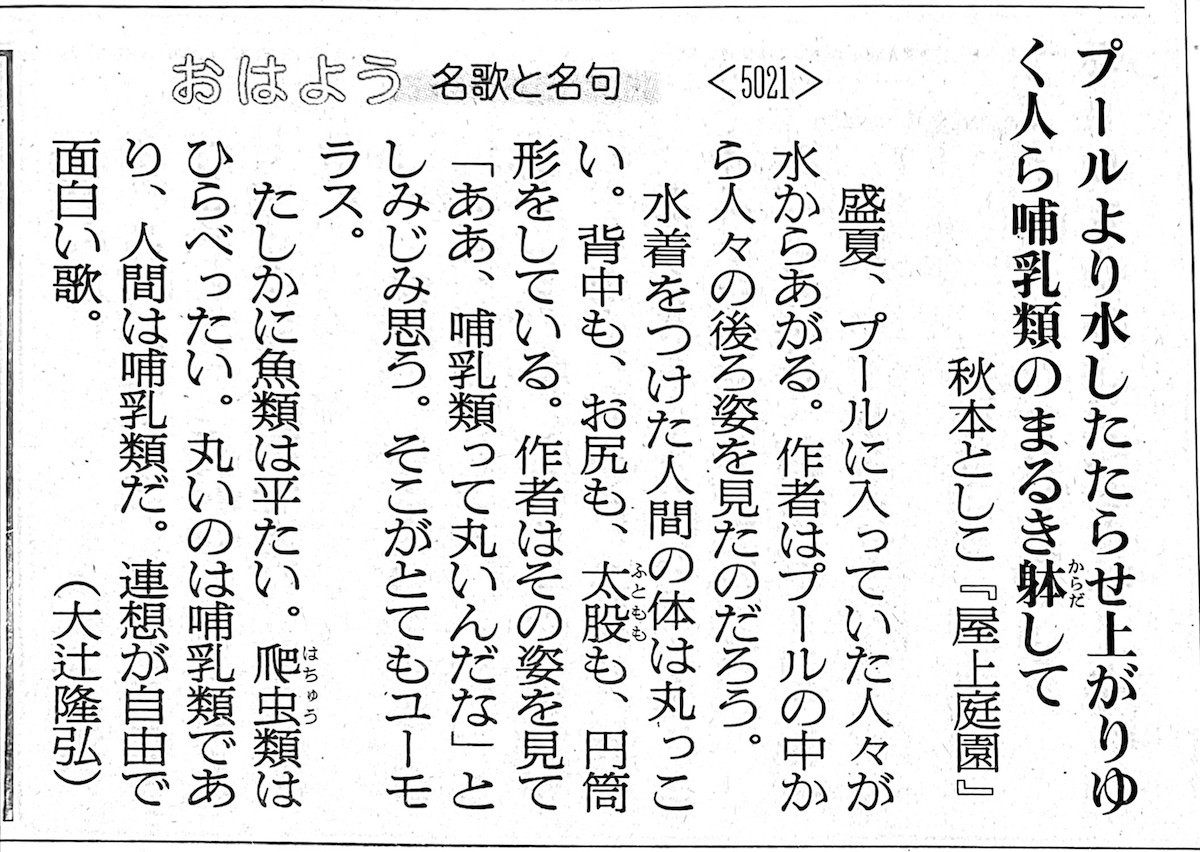 プールより水したたらせ上がりゆ
く人ら哺乳類のまるき躰して
からだ
秋本としこ『屋上庭園』
おはよう 名歌と名句 <5021>
盛夏、プールに入っていた人々が
水からあがる。作者はプールの中か
ら人々の後ろ姿を見たのだろう。
水着をつけた人間の体は丸っこ
い。背中も、お尻も、太股も、円筒
ふともも
形をしている。作者はその姿を見て
「ああ、哺乳類って丸いんだな」と
しみじみ思う。そこがとてもユーモ
ラス。
たしかに魚類は平たい。爬虫類は
はちゅう
ひらべったい。丸いのは哺乳類であ
り、人間は哺乳類だ。連想が自由で
面白い歌。
(大辻隆弘)